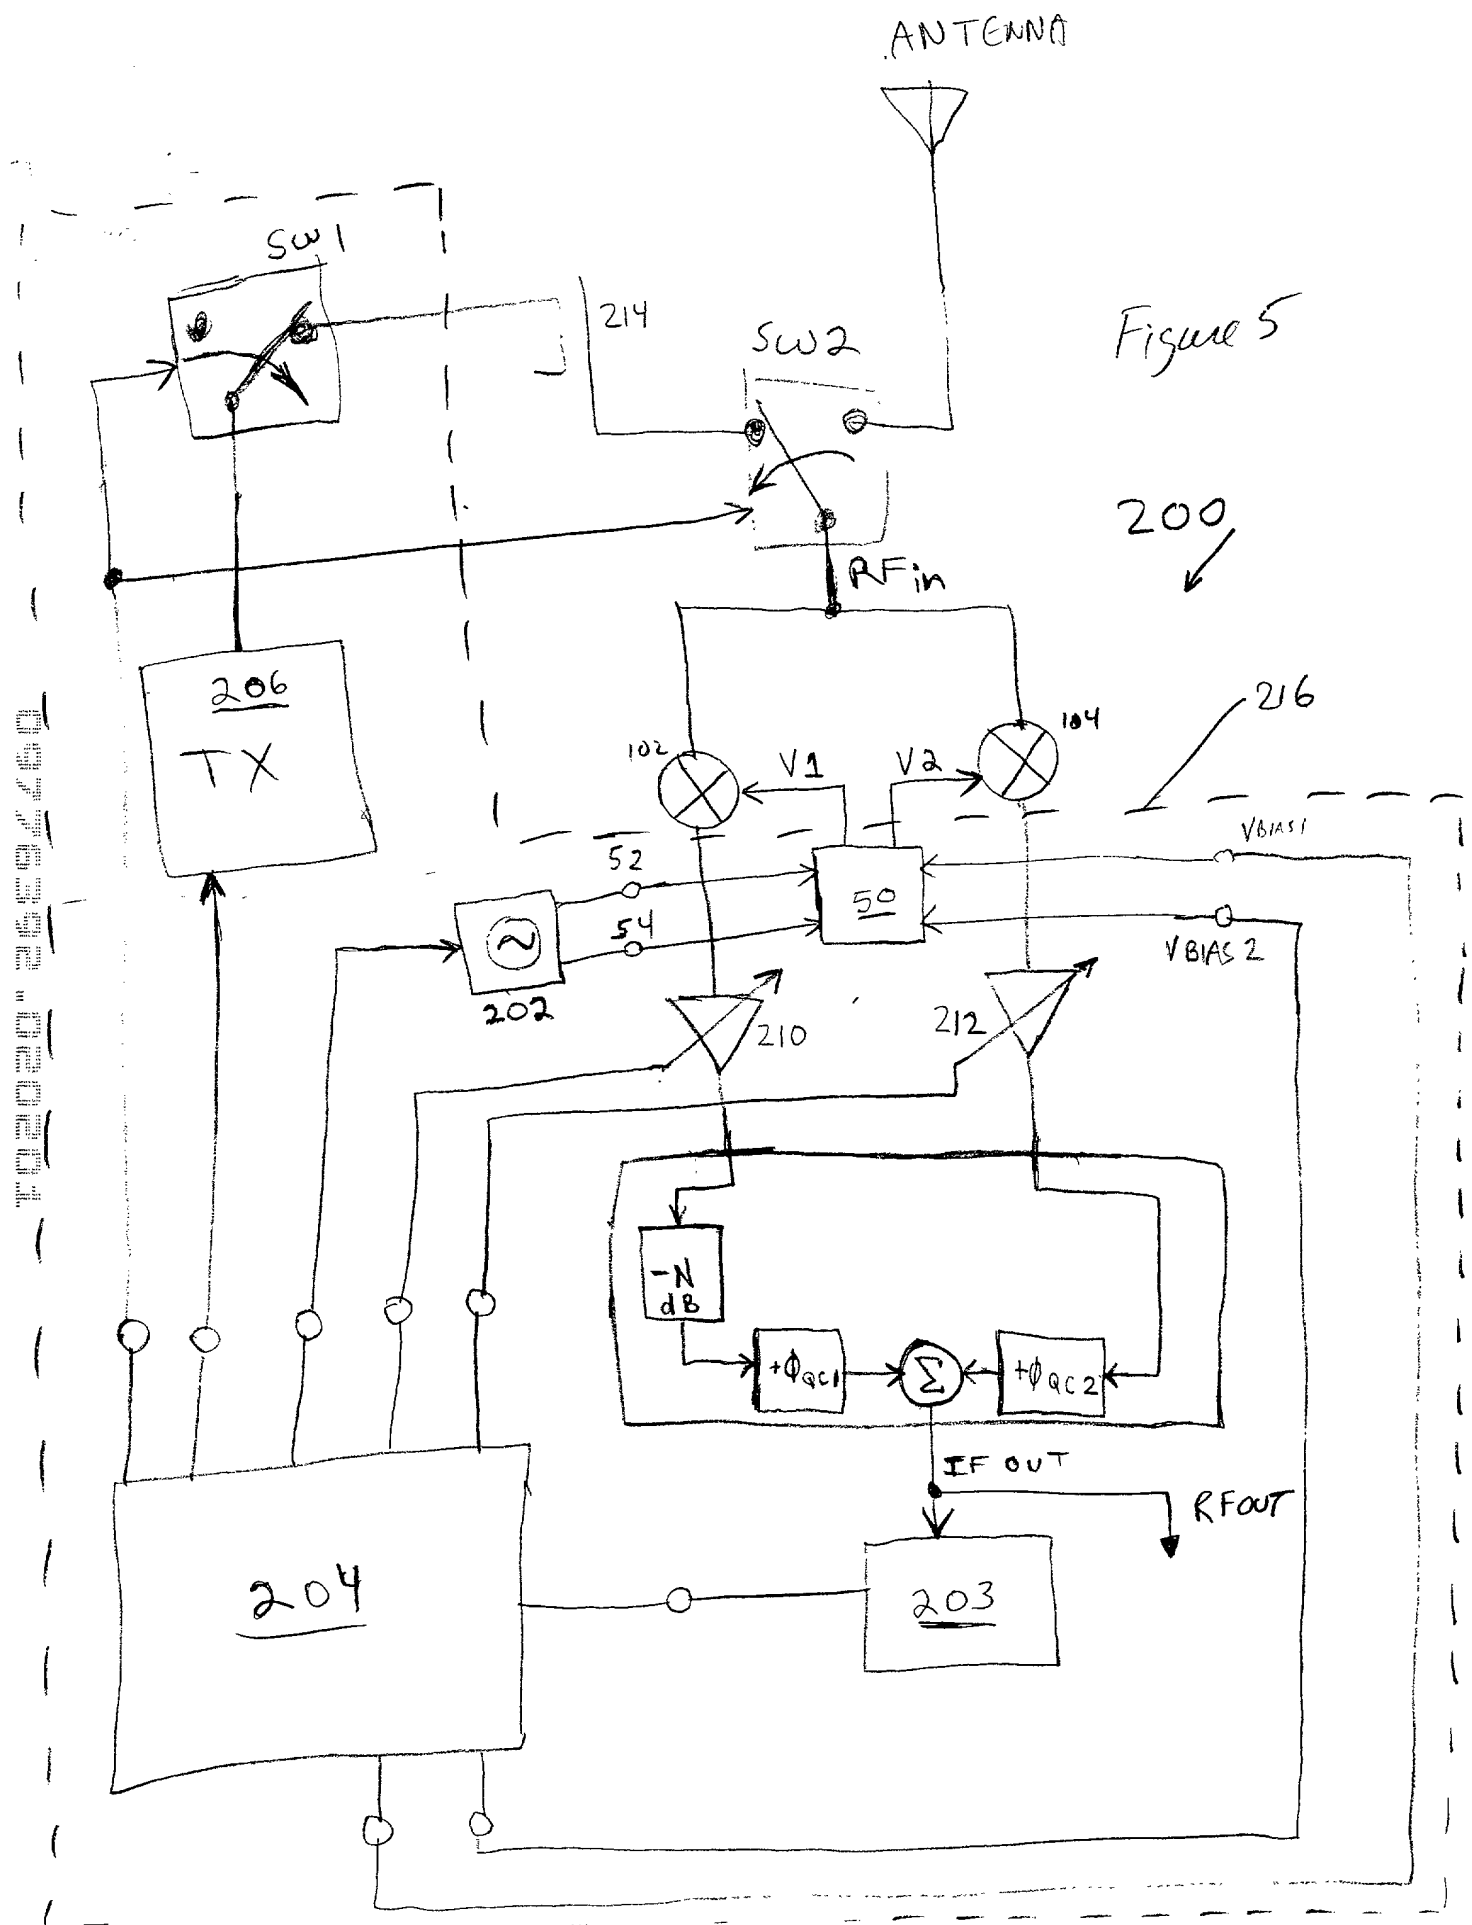 ANTENNA
SW1
214
SW2
Figure 5
200
RFin
206
TX
216
102
104
V1
V2
VBIAS1
52
50
54
VBIAS 2
202
210
212
-N
dB
+ΦQC1
Σ
+ΦQC2
IF OUT
RFOUT
204
203